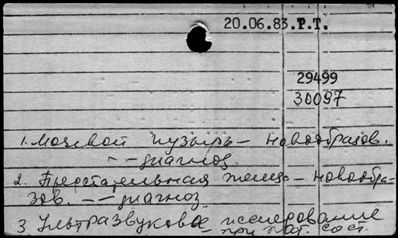 20.06.83.Р.Т.
29499
30097
1. Мочевой пузырь – новообразов.
– " – диагноз.
2. Предстательная железа – новообра-
зов. – " – диагноз.
3 Ультразвуковое исследование
при пат. сост.